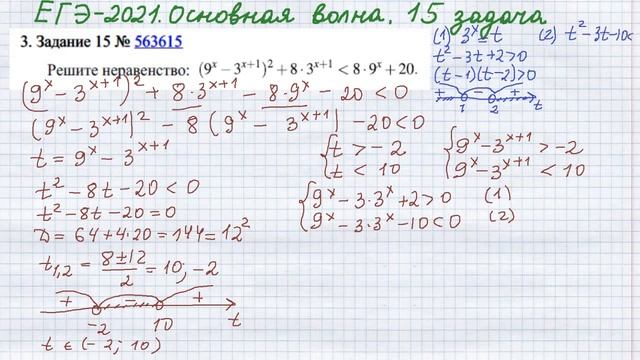 ЕГЭ-2021. Основная волна. 15 задача
3. Задание 15 № 563615
Решите неравенство: (9^x − 3^{x+1})^2 + 8·3^{x+1} < 8·9^x + 20.
(9^x − 3^{x+1})^2 + 8·3^{x+1} − 8·9^x − 20 < 0
(9^x − 3^{x+1})^2 − 8(9^x − 3^{x+1}) − 20 < 0
t = 9^x − 3^{x+1}
t^2 − 8t − 20 < 0
t^2 − 8t − 20 = 0
D = 64 + 4·20 = 144 = 12^2
t_{1,2} = (8 ± 12)/2 = 10; −2
+ − +
−2 10 t
t ∈ (−2; 10)
{ t > −2
t < 10
{ 9^x − 3^{x+1} > −2
9^x − 3^{x+1} < 10
{ 9^x − 3·3^x + 2 > 0 (1)
9^x − 3·3^x − 10 < 0 (2)
(1) 3^x = t
t^2 − 3t + 2 > 0
(t − 1)(t − 2) > 0
+ − +
1 2 t
(2) t^2 − 3t − 10<